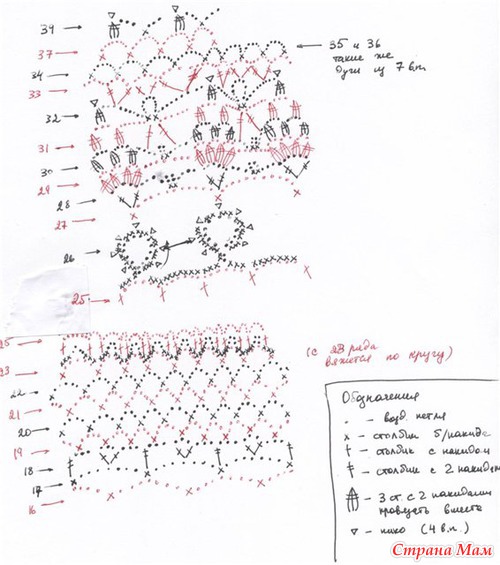 39
37
34
33
32
31
30
29
28
27
26
25
35 и 36
такие же
дуги из 7 в.п.
25
23
22
21
20
19
18
17
16
(с 28 ряда
вяжется по кругу)
Обозначения
. - возд. петля
х - столбик б/накида
† - столбик с накидом
‡ - столбик с 2 накидам
- 3 ст. с 2 накидами
провязать вместе
▽ - пико (4 в.п.)
Страна Мам